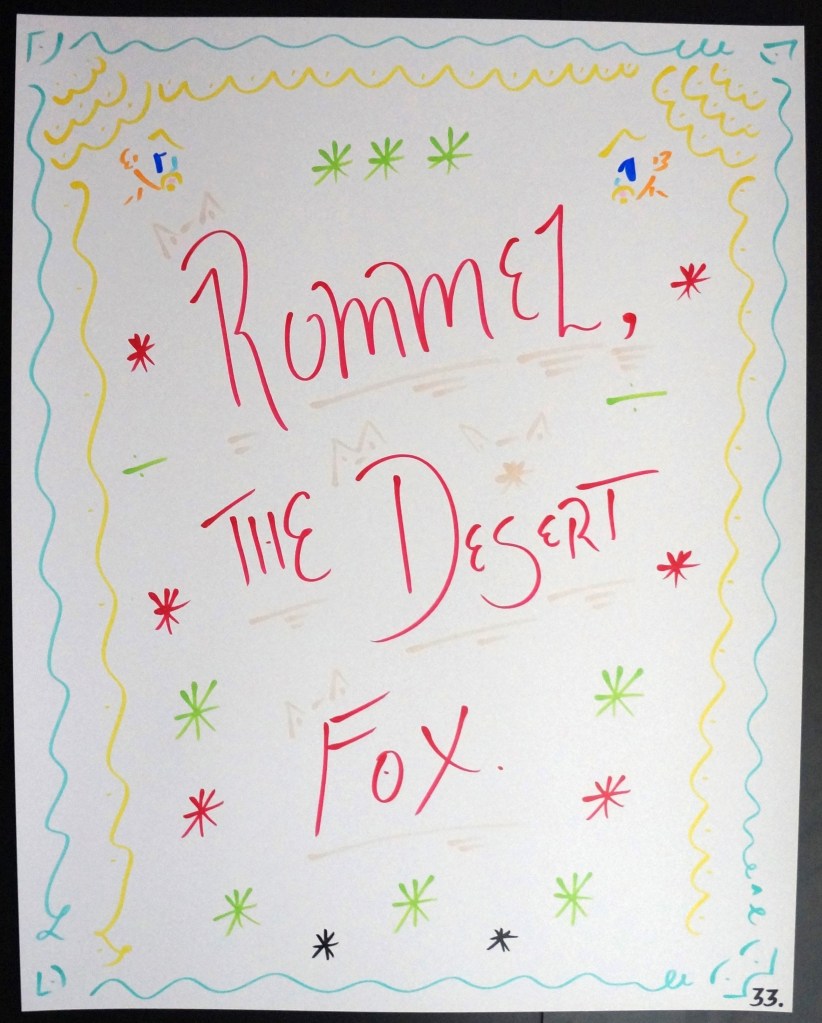 Rommel,
THE DESERT
FOX.
33.